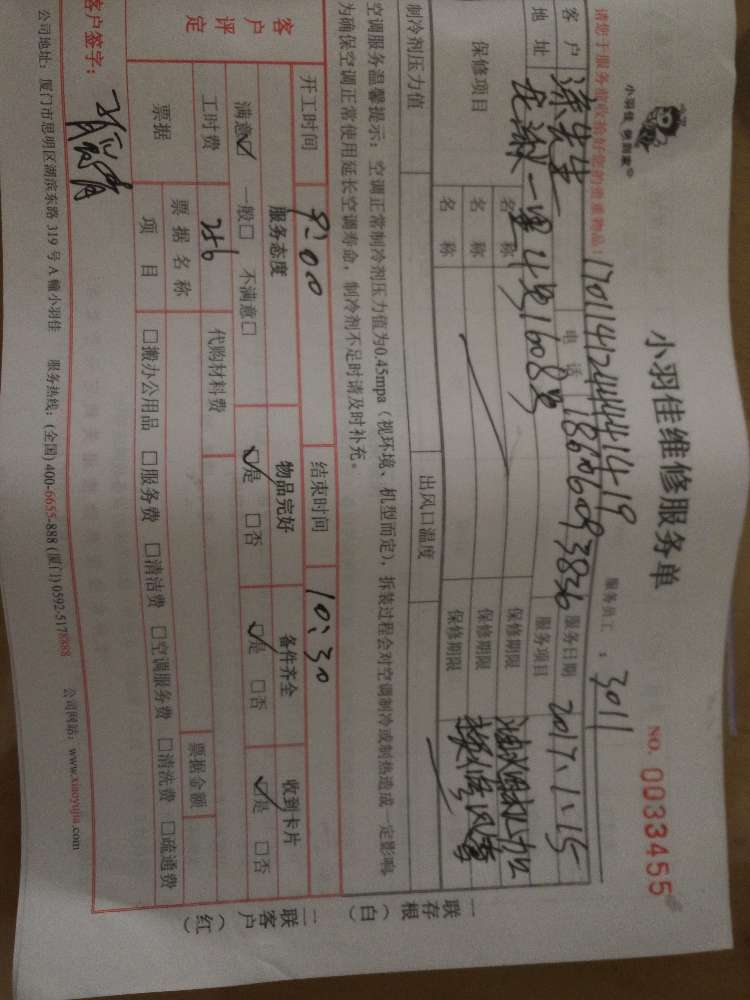 小羽佳 保洁家®
小羽佳维修服务单
NO. 0033455
请您于服务前收捡好您的贵重物品！
17011412444441419
服务员工：3011
客户 漆先生 电话 18606093836 服务日期 2017.1.15
地址 龙湫一里4号1608号 服务项目 油烟机加
保修项目
名称 保修期限
名称 保修期限
名称 保修期限
换烟管
制冷剂压力值 出风口温度
空调服务温馨提示：空调正常制冷剂压力值为0.45mpa（视环境、机型而定），拆装过程会对空调制冷或制热造成一定影响，
为确保空调正常使用延长空调寿命，制冷剂不足时请及时补充。
开工时间 9:00 结束时间 10:30
客户评定
服务态度 物品完好 备件齐全 收到卡片
满意☑ 一般□ 不满意□ ☑是 □否 ☑是 □否 ☑是 □否
工时费 256 代购材料费
票据 票据名称 票据金额
项目 □搬办公用品 □服务费 □清洁费 □空调服务费 □清洗费 □疏通费
客户签字：
公司地址：厦门市思明区湖滨东路 319 号 A 幢小羽佳 服务热线：(全国) 400-6655-888 (厦门) 0592-5178888 公司网站：www.xiaoyujia.com
一存根（白）
二客户（红）
联
联